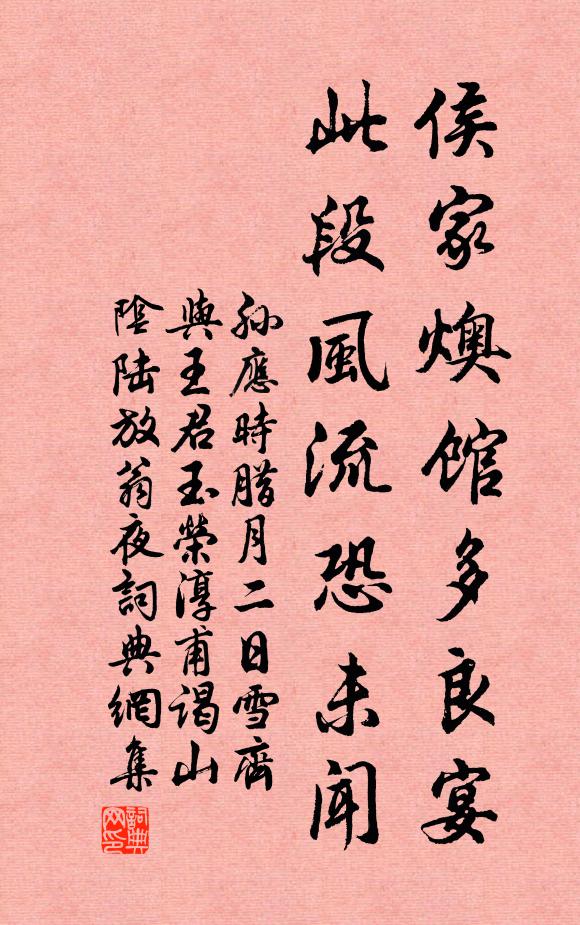 侯家燠馆多良宴
此段風流恐未聞
孫應時腊月二日雪齊
與王君玉榮淳甫谒山
陰陆放翁夜詞典網集
詞典
网印